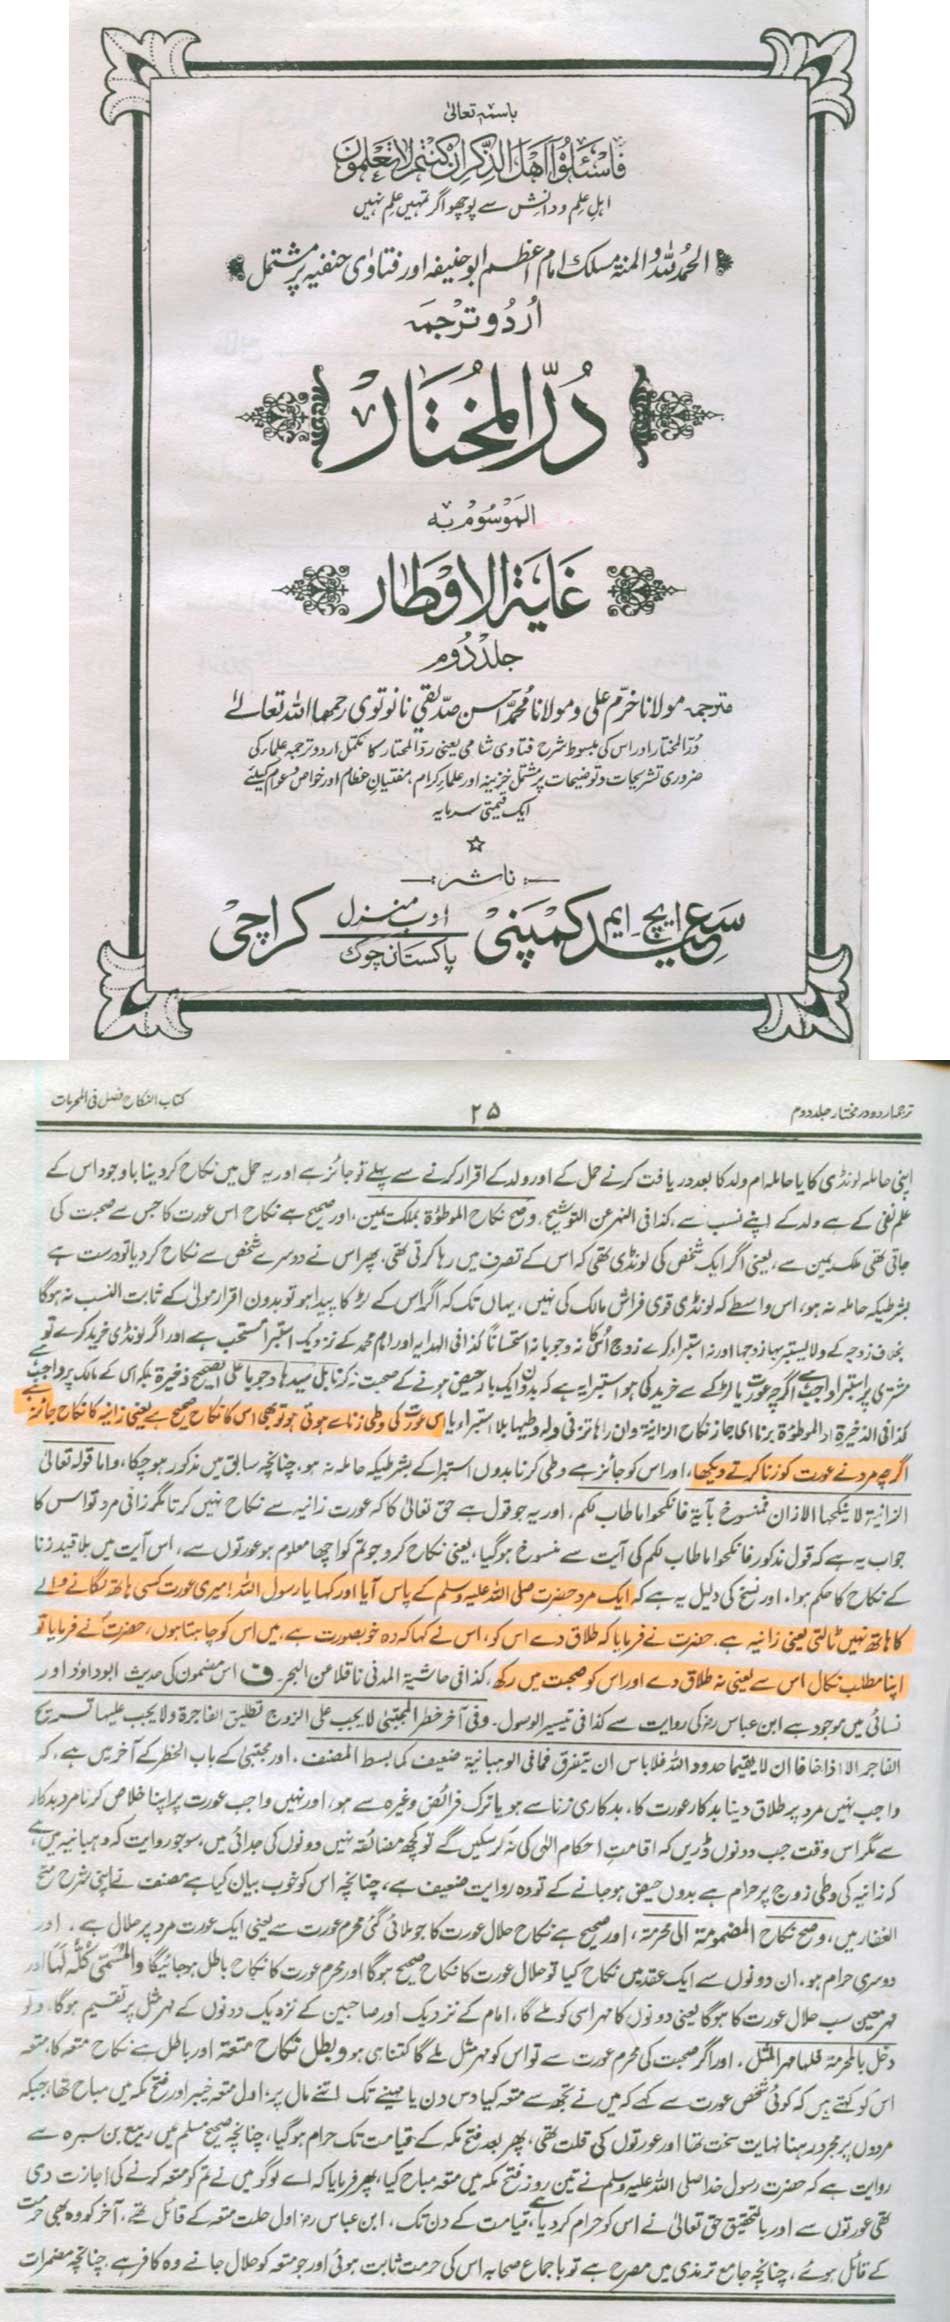 باسمہ تعالیٰ
فَاسْئَلُوْا اَهْلَ الذِّكْرِ اِنْ كُنْتُمْ لَا تَعْلَمُوْن
اہلِ علم و دانش سے پوچھو اگر تمہیں علم نہیں
الحمد للہ والمنۃ مسلک امام اعظم ابو حنیفہ اور فتاوٰی حنفیہ پر مشتمل
اُردُو ترجمہ
دُرّ المُختَار
المَوسُوم بہ
غَایَۃ الاَوطَار
جلد دُوم
مترجمہ مولانا خرّم علی و مولانا مُحمّد احسن صدّیقی نانوتوی رحمہما اللہ تعالےٰ
دُرّ المختار اور اس کی مبسوط شرح فتاوی شامی یعنی ردّ المحتار کا مکمّل اردو ترجمہ علماء کی
ضروری تشریحات و توضیحات پر مشتمل خزینہ اور علماء کرام، مفتیانِ عظام اور خواص و عوام کیلئے
ایک قیمتی سرمایہ
ناشر
ایچ ایم سعید کمپنی ادب منزل پاکستان چوک کراچی
ترجمہ اردو در مختار جلد دوم ۲۵ کتاب النکاح فصل فی المحرمات
اپنی حاملہ لونڈی کا یا حاملہ ام ولد کا بعد دریافت کرنے حمل کے اور ولد کے اقرار کرنے سے پہلے تو جائز ہے اور یہ حمل میں نکاح کر دینا باوجود اس کے
علم نفی کے ہے ولد کے اپنے نسب سے، کذا فی النہر عن التوشیح، وصح نکاح الموطوٴۃ بملک یمین، اور صحیح ہے نکاح اس عورت کا جس سے صحبت کی
جاتی تھی ملک یمین سے، یعنی اگر ایک شخص کی لونڈی تھی کہ اس کے تصرف میں رہا کرتی تھی، پھر اس نے دوسرے شخص سے نکاح کر دیا تو درست ہے
بشرطیکہ حاملہ نہ ہو، اس واسطے کہ لونڈی قوی فراش مالک کی نہیں، یہاں تک کہ اگر اس کے لڑکا پیدا ہو تو بدون اقرار مولیٰ کے ثابت النسب نہ ہوگا
بخلاف زوجہ کے ولا یستبرٴیہا زوجہا اور نہ استبرا کرے زوج اُسکا نہ وجوبا نہ استحسانا کذا فی الہدایہ اور امام محمد کے نزدیک استبرا مستحب ہے اور اگر لونڈی خرید کرے تو
مشتری پر استبرا واجب ہے اگرچہ عورت یا لڑکے سے خرید کی ہو استبرا یہ ہے کہ بدون ایک بار حیض ہونے کے صحبت نہ کرنا بل سیدہا وجوبا علی الصحیح ذخیرۃ بلکہ اس کے مالک پر واجب ہے
کذا فی الذخیرۃ او الموطوٴۃ بزنا ای جاز نکاح الزانیۃ وان راٰہا تزنی ولہ وطیہا بلا استبراء یا اس عورت کی وطی زنا سے ہوتی ہو تو بھی اس کا نکاح صحیح ہے یعنی زانیہ کا نکاح جائز ہے
اگرچہ مرد نے عورت کو زنا کرتے دیکھا، اور اس کو جائز ہے وطی کرنا بدوں استبرا کے بشرطیکہ حاملہ نہ ہو، چنانچہ سابق میں مذکور ہو چکا، واما قولہ تعالیٰ
الزانیۃ لا ینکحہا الا زان فمنسوخ بآیۃ فانکحوا ما طاب لکم، اور یہ جو قول ہے حق تعالیٰ کا کہ عورت زانیہ سے نکاح نہیں کرتا مگر زانی مرد تو اس کا
جواب یہ ہے کہ قول مذکور فانکحوا ما طاب لکم کی آیت سے منسوخ ہو گیا، یعنی نکاح کرو جو تم کو اچھا معلوم ہو عورتوں سے، اس آیت میں بلا قید زنا
کے نکاح کا حکم ہوا، اور نسخ کی دلیل یہ ہے کہ ایک مرد حضرت صلی اللہ علیہ وسلم کے پاس آیا اور کہا یا رسول اللہ! میری عورت کسی ہاتھ لگانے والے
کا ہاتھ نہیں ٹالتی یعنی زانیہ ہے، حضرت نے فرمایا کہ طلاق دے اس کو، اس نے کہا کہ وہ خوبصورت ہے، میں اس کو چاہتا ہوں، حضرت نے فرمایا تو
اپنا مطلب نکال اس سے یعنی نہ طلاق دے اور اس کو صحبت میں رکھ، کذا فی حاشیۃ المدنی ناقلا عن البحر ف اس مضمون کی حدیث ابو داود اور
نسائی میں موجود ہے ابن عباس رض کی روایت سے کذا فی تیسیر الوسول۔ وفی آخر حظر المجتبیٰ لا یجب علی الزوج تطلیق الفاجرۃ ولا یجب علیہا تسریح
الفاجر الا اذا خافا ان لا یقیما حدود اللہ فلا باس ان یتفرقا فما فی الوہبانیۃ ضعیف کما بسط المصنف، اور مجتبیٰ کے باب الحظر کے آخر میں ہے، کہ
واجب نہیں مرد پر طلاق دینا بدکار عورت کا، بدکاری زنا سے ہو یا ترک فرائض وغیرہ سے ہو، اور نہیں واجب عورت پر اپنا خلاص کرنا مرد بدکار
سے مگر اس وقت جب دونوں ڈریں کہ اقامت احکام الٰہی کی نہ کر سکیں گے تو کچھ مضائقہ نہیں دونوں کی جدائی میں، سو جو روایت کہ وہبانیہ میں ہے
کہ زانیہ کی وطی زوج پر حرام ہے بدوں حیض ہو جانے کے تو وہ روایت ضعیف ہے، چنانچہ اس کو خوب بیان کیا ہے مصنف نے اپنی شرح منح
الغفار میں، وصح نکاح المضمومۃ الی محرمۃ، اور صحیح ہے نکاح حلال عورت کا جو ملائی گئی محرم عورت سے یعنی ایک عورت مرد پر حلال ہے، اور
دوسری حرام ہو، ان دونوں سے ایک عقد میں نکاح کیا تو حلال عورت کا نکاح صحیح ہوگا اور محرم عورت کا نکاح باطل ہو جائیگا والمسمّی کُلُّہٗ لَہَا اور
مہر معین سب حلال عورت کا ہوگا یعنی دونوں کا مہر اسی کو ملے گا، امام کے نزدیک اور صاحبین کے نزدیک دونوں کے مہر مثل پر تقسیم ہوگا، ولو
دخل بالمحرمۃ فلہا مہر المثل، اور اگر صحبت کی محرم عورت سے تو اس کو مہر مثل ملے گا کتنا ہی ہو وبطل نکاح متعۃ اور باطل ہے نکاح متعہ کا، متعہ
اس کو کہتے ہیں کہ کوئی شخص عورت سے کہے کہ میں نے تجھ سے متعہ کیا دس دن یا مہینے تک اتنے مال پر، اول متعہ خیبر اور فتح مکہ میں مباح تھا، جبکہ
مردوں پر مجرد رہنا نہایت سخت تھا اور عورتوں کی قلت تھی، پھر بعد فتح مکہ کے قیامت تک حرام ہو گیا، چنانچہ صحیح مسلم میں ربیع بن سبرہ سے
روایت ہے کہ حضرت رسول خدا صلی اللہ علیہ وسلم نے تین روز فتح مکہ میں متعہ مباح کیا، پھر فرمایا کہ اے لوگو میں نے تم کو متعہ کرنے کی اجازت دی
تھی عورتوں سے اور بالتحقیق حق تعالیٰ نے اس کو حرام کر دیا ہے، قیامت کے دن تک، ابن عباس رض اول حلت متعہ کے قائل تھے، آخر کو وہ بھی حرمت
کے قائل ہوئے، چنانچہ جامع ترمذی میں مصرح ہے تو با جماع صحابہ اس کی حرمت ثابت ہوئی اور جو متعہ کو حلال جانے وہ کافر ہے، چنانچہ مضمرات